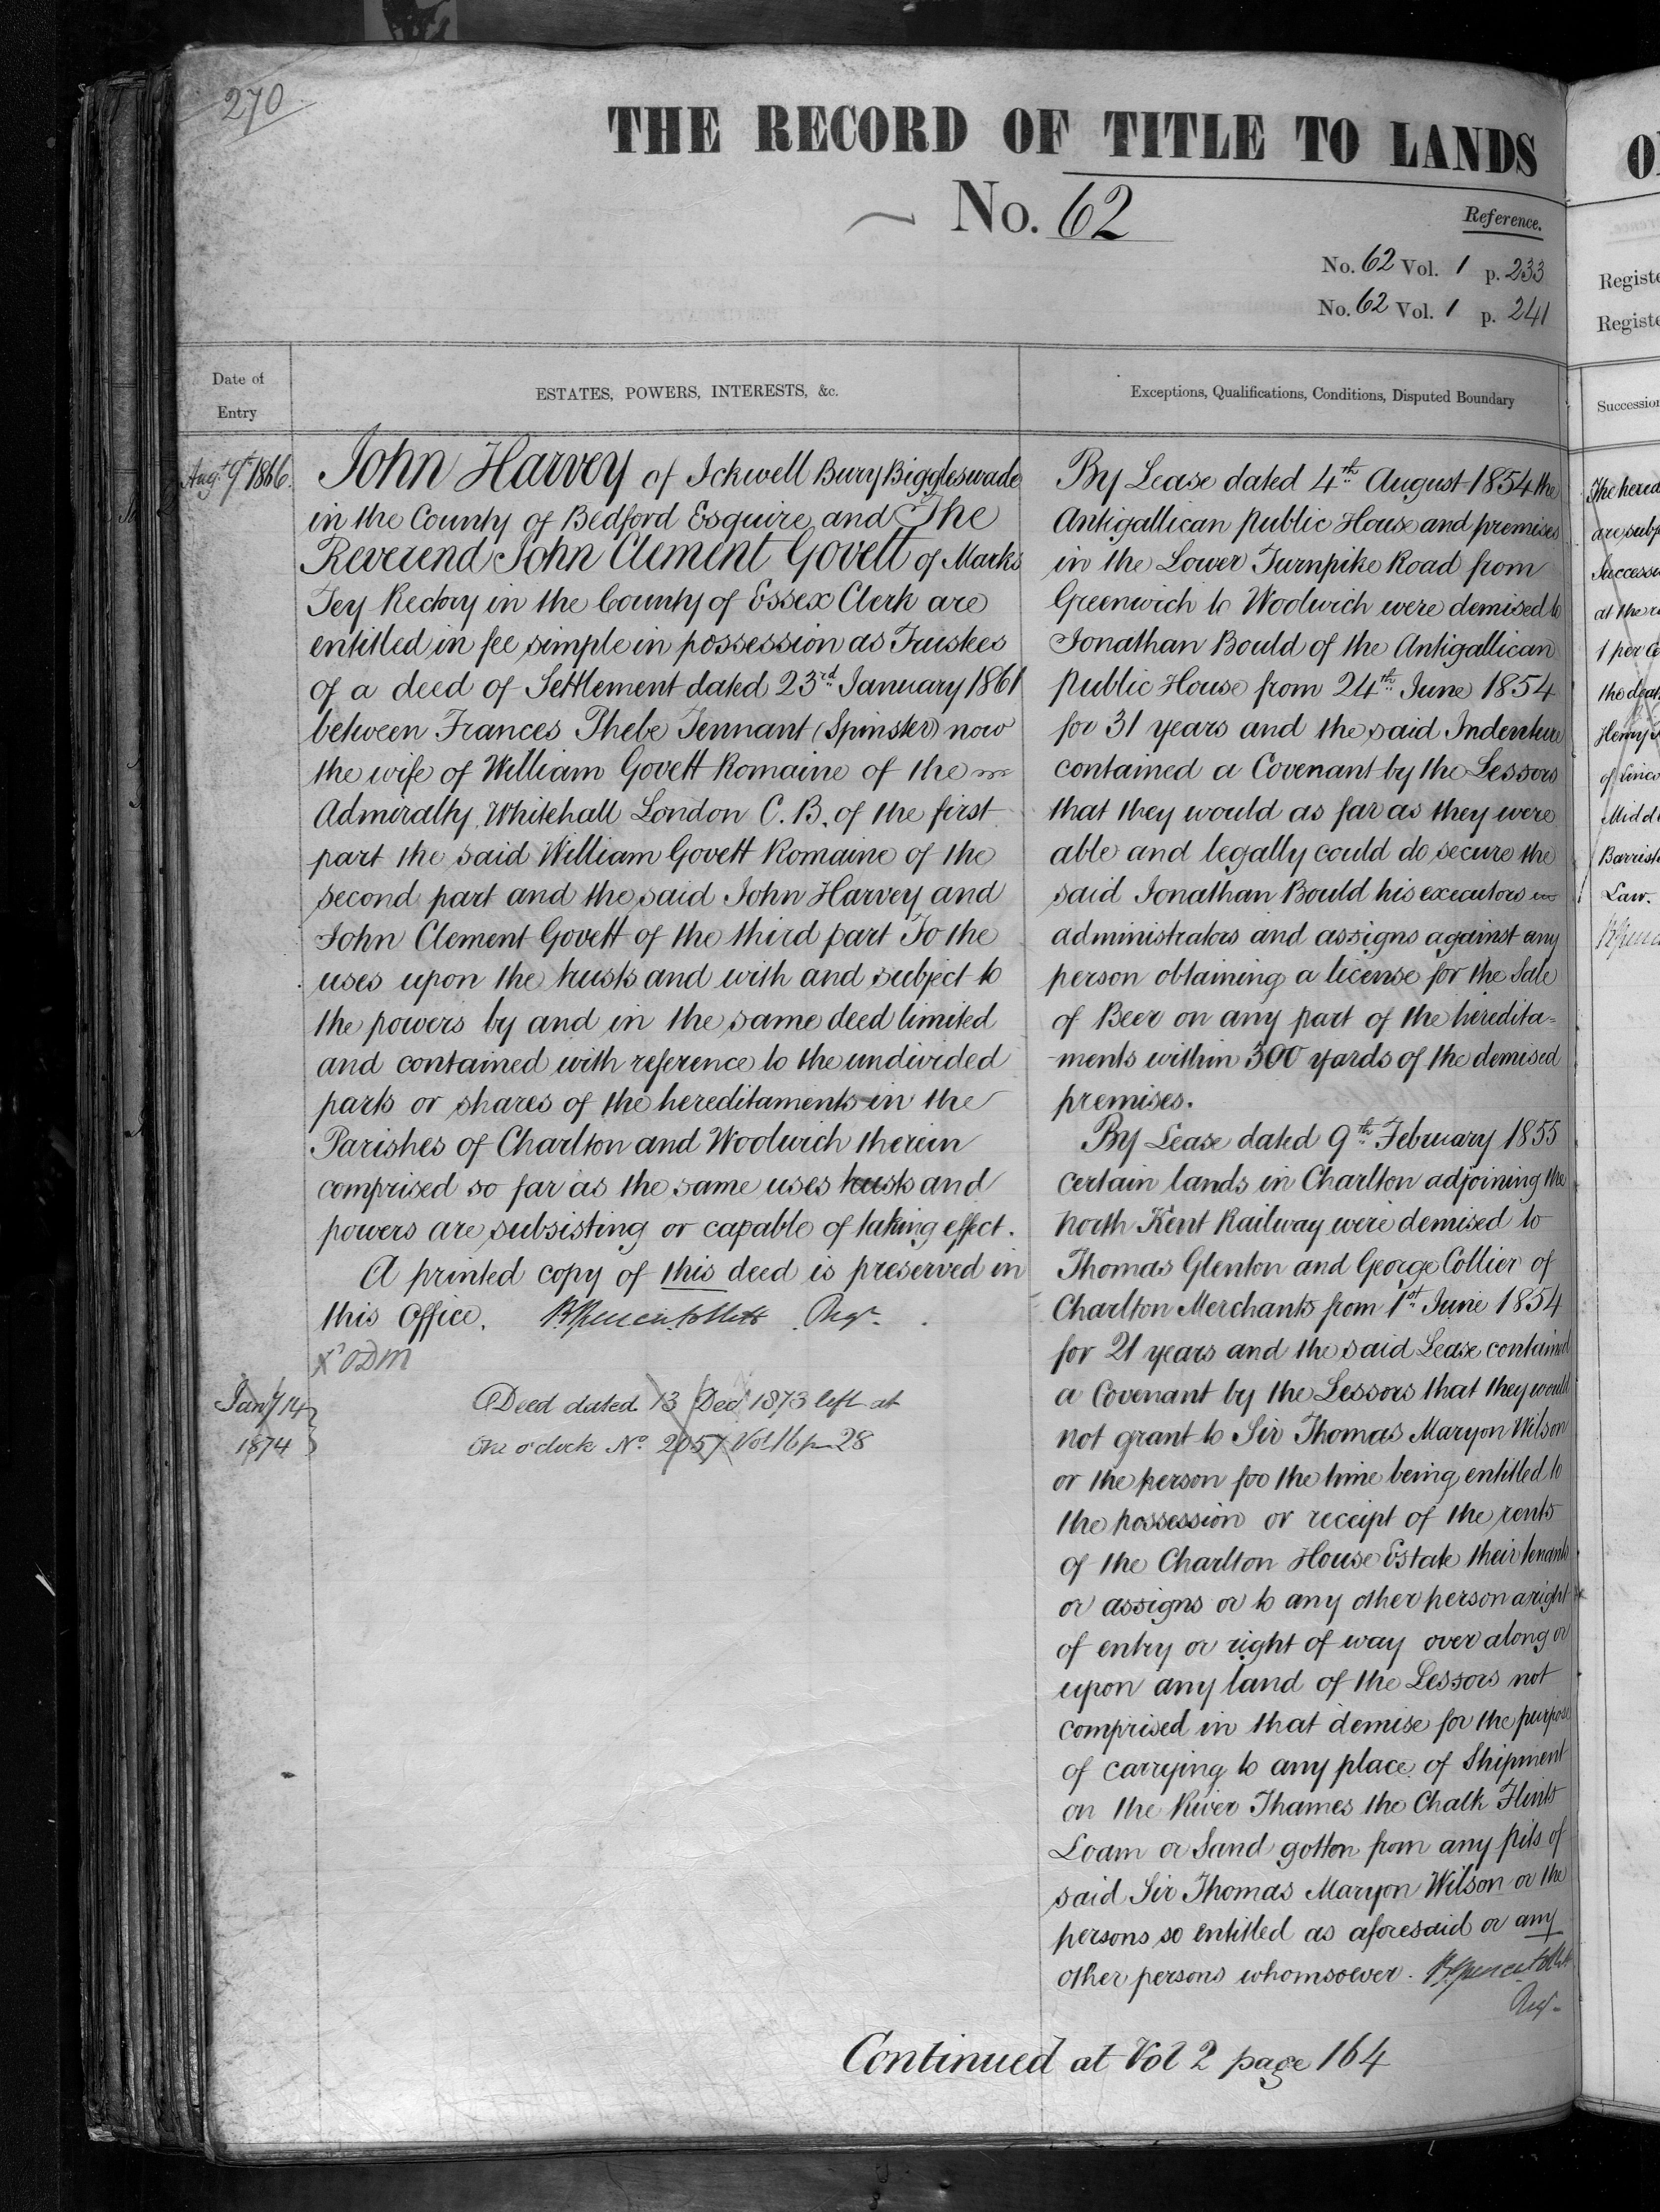 270
THE RECORD OF TITLE TO LANDS
No. 62
Reference.
No. 62 Vol. 1 p. 233
No. 62 Vol. 1 p. 241
Date of
Entry
ESTATES, POWERS, INTERESTS, &c.
Exceptions, Qualifications, Conditions, Disputed Boundary
Augt. 9th 1866.
John Harvey of Ickwell Bury Biggleswade
in the County of Bedford Esquire and The
Reverend John Clement Govett of Marks
Tey Rectory in the County of Essex Clerk are
entitled in fee simple in possession as Trustees
of a deed of Settlement dated 23rd January 1861
between Frances Phebe Tennant (Spinster) now
the wife of William Govett Romaine of the
Admiralty Whitehall London C.B. of the first
part the said William Govett Romaine of the
second part and the said John Harvey and
John Clement Govett of the third part To the
uses upon the trusts and with and subject to
the powers by and in the same deed limited
and contained with reference to the undivided
parts or shares of the hereditaments in the
Parishes of Charlton and Woolwich therein
comprised so far as the same uses trusts and
powers are subsisting or capable of taking effect.
A printed copy of this deed is preserved in
this Office. Regr.
Jany 14
1874
A Deed dated 13 Decr 1873 left at
One o'clock No. 2057 Vol 16 p 28
By Lease dated 4th August 1854 the
Antigallican public House and premises
in the Lower Turnpike Road from
Greenwich to Woolwich were demised to
Jonathan Bould of the Antigallican
public House from 24th June 1854
for 31 years and the said Indenture
contained a Covenant by the Lessors
that they would as far as they were
able and legally could do secure the
said Jonathan Bould his executors
administrators and assigns against any
person obtaining a license for the Sale
of Beer on any part of the heredita=
-ments within 300 yards of the demised
premises.
By Lease dated 9th February 1855
certain lands in Charlton adjoining the
North Kent Railway were demised to
Thomas Glenton and George Collier of
Charlton Merchants from 1st June 1854
for 21 years and the said Lease contained
a Covenant by the Lessors that they would
not grant to Sir Thomas Maryon Wilson
or the person for the time being entitled to
the possession or receipt of the rents
of the Charlton House Estate their tenants
or assigns or to any other person a right
of entry or right of way over along or
upon any land of the Lessors not
comprised in that demise for the purpose
of carrying to any place of Shipment
on the River Thames the Chalk Flints
Loam or Sand gotten from any pits of
said Sir Thomas Maryon Wilson or the
persons so entitled as aforesaid or any
other persons whomsoever.
Regr.
Continued at Vol 2 page 164
Registe
Registe
Succession
The hered
are subj
Successi
at the r
1 per Ce
the deat
Henry
of Linco
Middl
Barrist
Law.